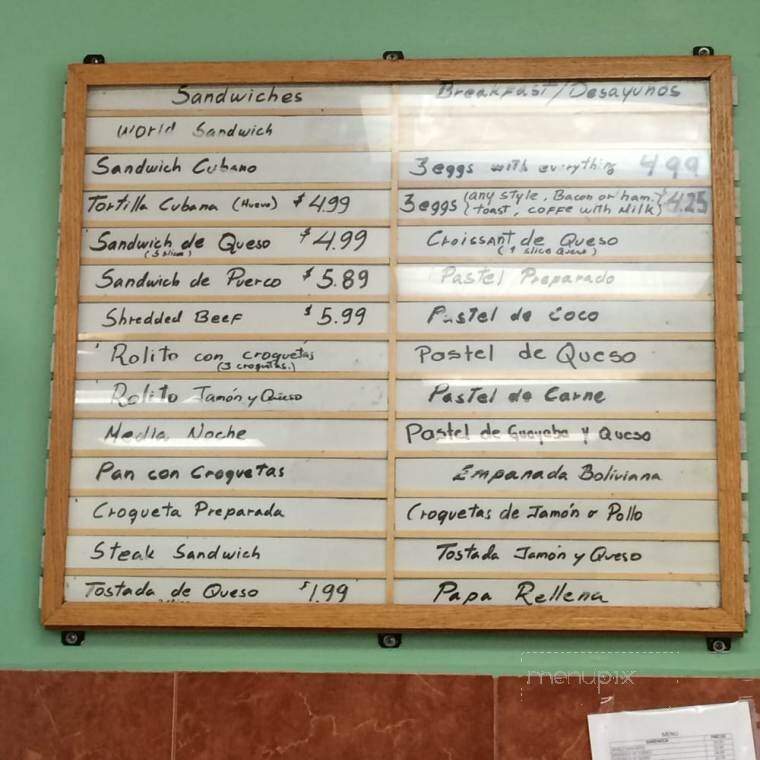 Sandwiches
World Sandwich
Sandwich Cubano
Tortilla Cubana (Huevo) $4.99
Sandwich de Queso $4.99
Sandwich de Puerco $5.89
Shredded Beef $5.99
Rolito con croquetas
(3 croquetas.)
Rolito Jamón y Queso
Media Noche
Pan con Croquetas
Croqueta Preparada
Steak Sandwich
Tostada de Queso $1.99
Breakfast/Desayunos
3 eggs with everything 4.99
3 eggs (any style, Bacon or ham. $4.25
toast, coffe with Milk)
Croissant de Queso
(1 slice Queso)
Pastel Preparado
Pastel de Coco
Pastel de Queso
Pastel de Carne
Pastel de Guayaba y Queso
Empanada Boliviana
Croquetas de Jamón o Pollo
Tostada Jamón y Queso
Papa Rellena
menupix
MENU